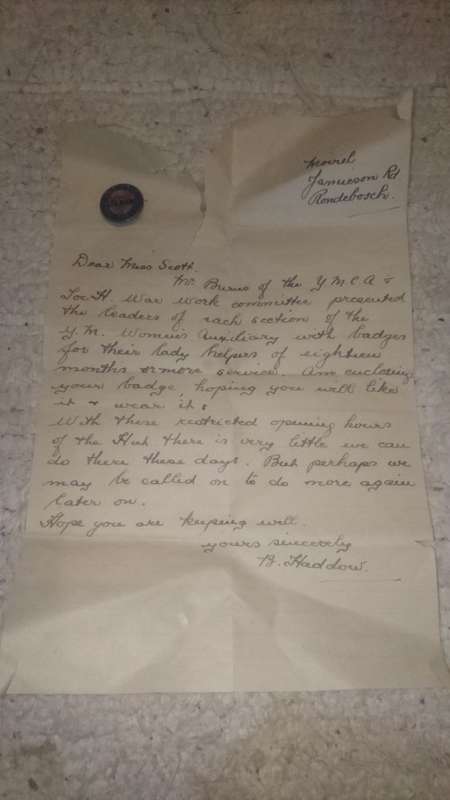 Jamieson Rd
Rondebosch.
Dear Miss Scott.
Mr. Burns of the Y M C A &
Toc H. War work committee presented
the leaders of each section of the
Y. M. Women's Auxiliary with badges
for their lady helpers of eighteen
months or more service. Am enclosing
your badge, hoping you will like
it & wear it.
With these restricted opening hours
of the Hut there is very little we can
do there these days. But perhaps we
may be called on to do more again
later on.
Hope you are keeping well.
yours sincerely
Haddow.